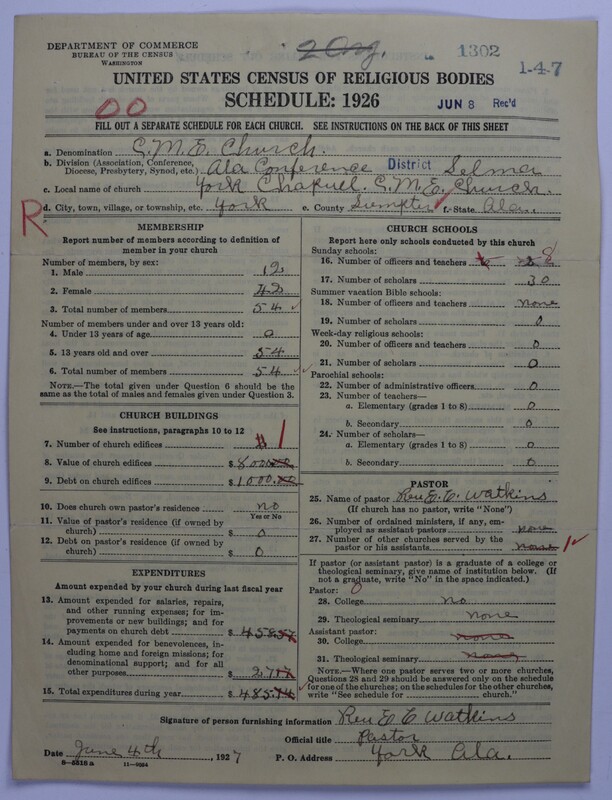 DEPARTMENT OF COMMERCE
BUREAU OF THE CENSUS
WASHINGTON
1302
1-4-7
UNITED STATES CENSUS OF RELIGIOUS BODIES
SCHEDULE: 1926
JUN 8 Rec'd
00
FILL OUT A SEPARATE SCHEDULE FOR EACH CHURCH. SEE INSTRUCTIONS ON THE BACK OF THIS SHEET
a. Denomination C.M.E. Church.
b. Division (Association, Conference, Diocese, Presbytery, Synod, etc.) Ala Conference District Selma
c. Local name of church York Chapuel. C.M.E. Church.
d. City, town, village, or township, etc. York e. County Sumpter f. State Ala.
R
MEMBERSHIP
Report number of members according to definition of
member in your church
Number of members, by sex:
1. Male 12
2. Female 42
3. Total number of members 54
Number of members under and over 13 years old:
4. Under 13 years of age 0
5. 13 years old and over 54
6. Total number of members 54
NOTE.—The total given under Question 6 should be
same as the total of males and females given under Question 3.
CHURCH BUILDINGS
See instructions, paragraphs 10 to 12
7. Number of church edifices 1
8. Value of church edifices $ 800
9. Debt on church edifices $ 1000
10. Does church own pastor's residence? no
Yes or No
11. Value of pastor's residence (if owned by
church) $ 0
12. Debt on pastor's residence (if owned by
church) $ 0
EXPENDITURES
Amount expended by your church during last fiscal year
13. Amount expended for salaries, repairs,
and other running expenses; for im-
provements or new buildings; and for
payments on church debt $ 458
14. Amount expended for benevolences,
including home and foreign missions; for
denominational support; and for all
other purposes $ 27
15. Total expenditures during year $ 485
CHURCH SCHOOLS
Report here only schools conducted by this church
Sunday schools:
16. Number of officers and teachers 8
17. Number of scholars 30
Summer vacation Bible schools:
18. Number of officers and teachers none
19. Number of scholars 0
Week-day religious schools:
20. Number of officers and teachers 0
21. Number of scholars 0
Parochial schools:
22. Number of administrative officers 0
23. Number of teachers—
a. Elementary (grades 1 to 8) 0
b. Secondary 0
24. Number of scholars—
a. Elementary (grades 1 to 8) 0
b. Secondary 0
PASTOR
25. Name of pastor Rev E. C. Watkins
(If church has no pastor, write "None")
26. Number of ordained ministers, if any, em-
ployed as assistant pastors none
27. Number of other churches served by the
pastor or his assistants none 1
If pastor (or assistant pastor) is a graduate of a college or
theological seminary, give name of institution below. (If
not a graduate, write "No" in the space indicated.)
Pastor: 0
28. College no
29. Theological seminary none
Assistant pastor:
30. College none
31. Theological seminary none
NOTE.—Where one pastor serves two or more churches,
Questions 28 and 29 should be answered only on the schedule
for one of the churches; on the schedules for the other churches,
write "See schedule for church."
Signature of person furnishing information Rev E C Watkins
Official title Pastor
Date June 4th, 1927 P. O. Address York Ala.
8-5516a 11-9064